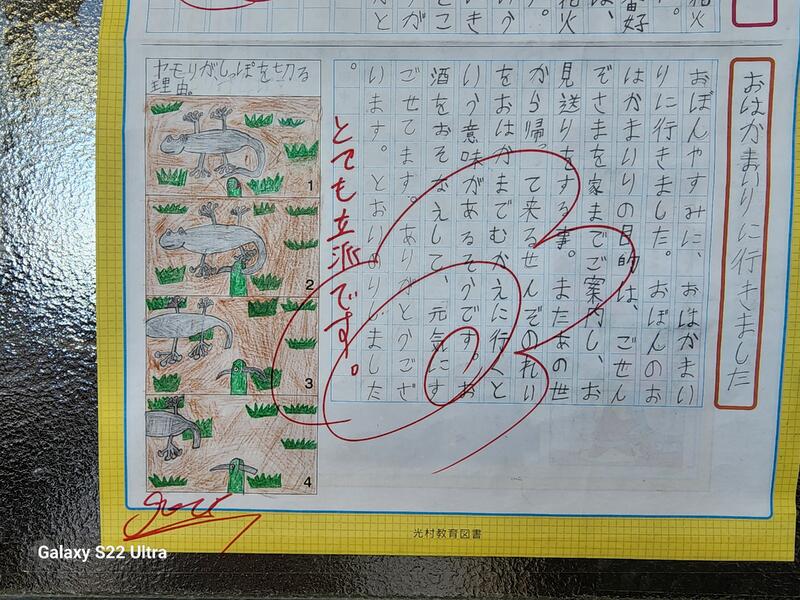 おはかまいりに行きました
おぼんやすみに、おはかまい
りに行きました。おぼんのお
はかまいりの目的は、ごせん
ぞさまを家までご案内し、お
見送りをする事。またあの世
から帰って来るせんぞのれい
をおはかまでむかえに行くと
いう意味があるそうです。お
酒をおそなえして、元気にす
ごせてます。ありがとうござ
います。とおいのりしました
。
とても立派です。
ヤモリがしっぽを切る
理由。
1
2
3
4
光村教育図書
Galaxy S22 Ultra